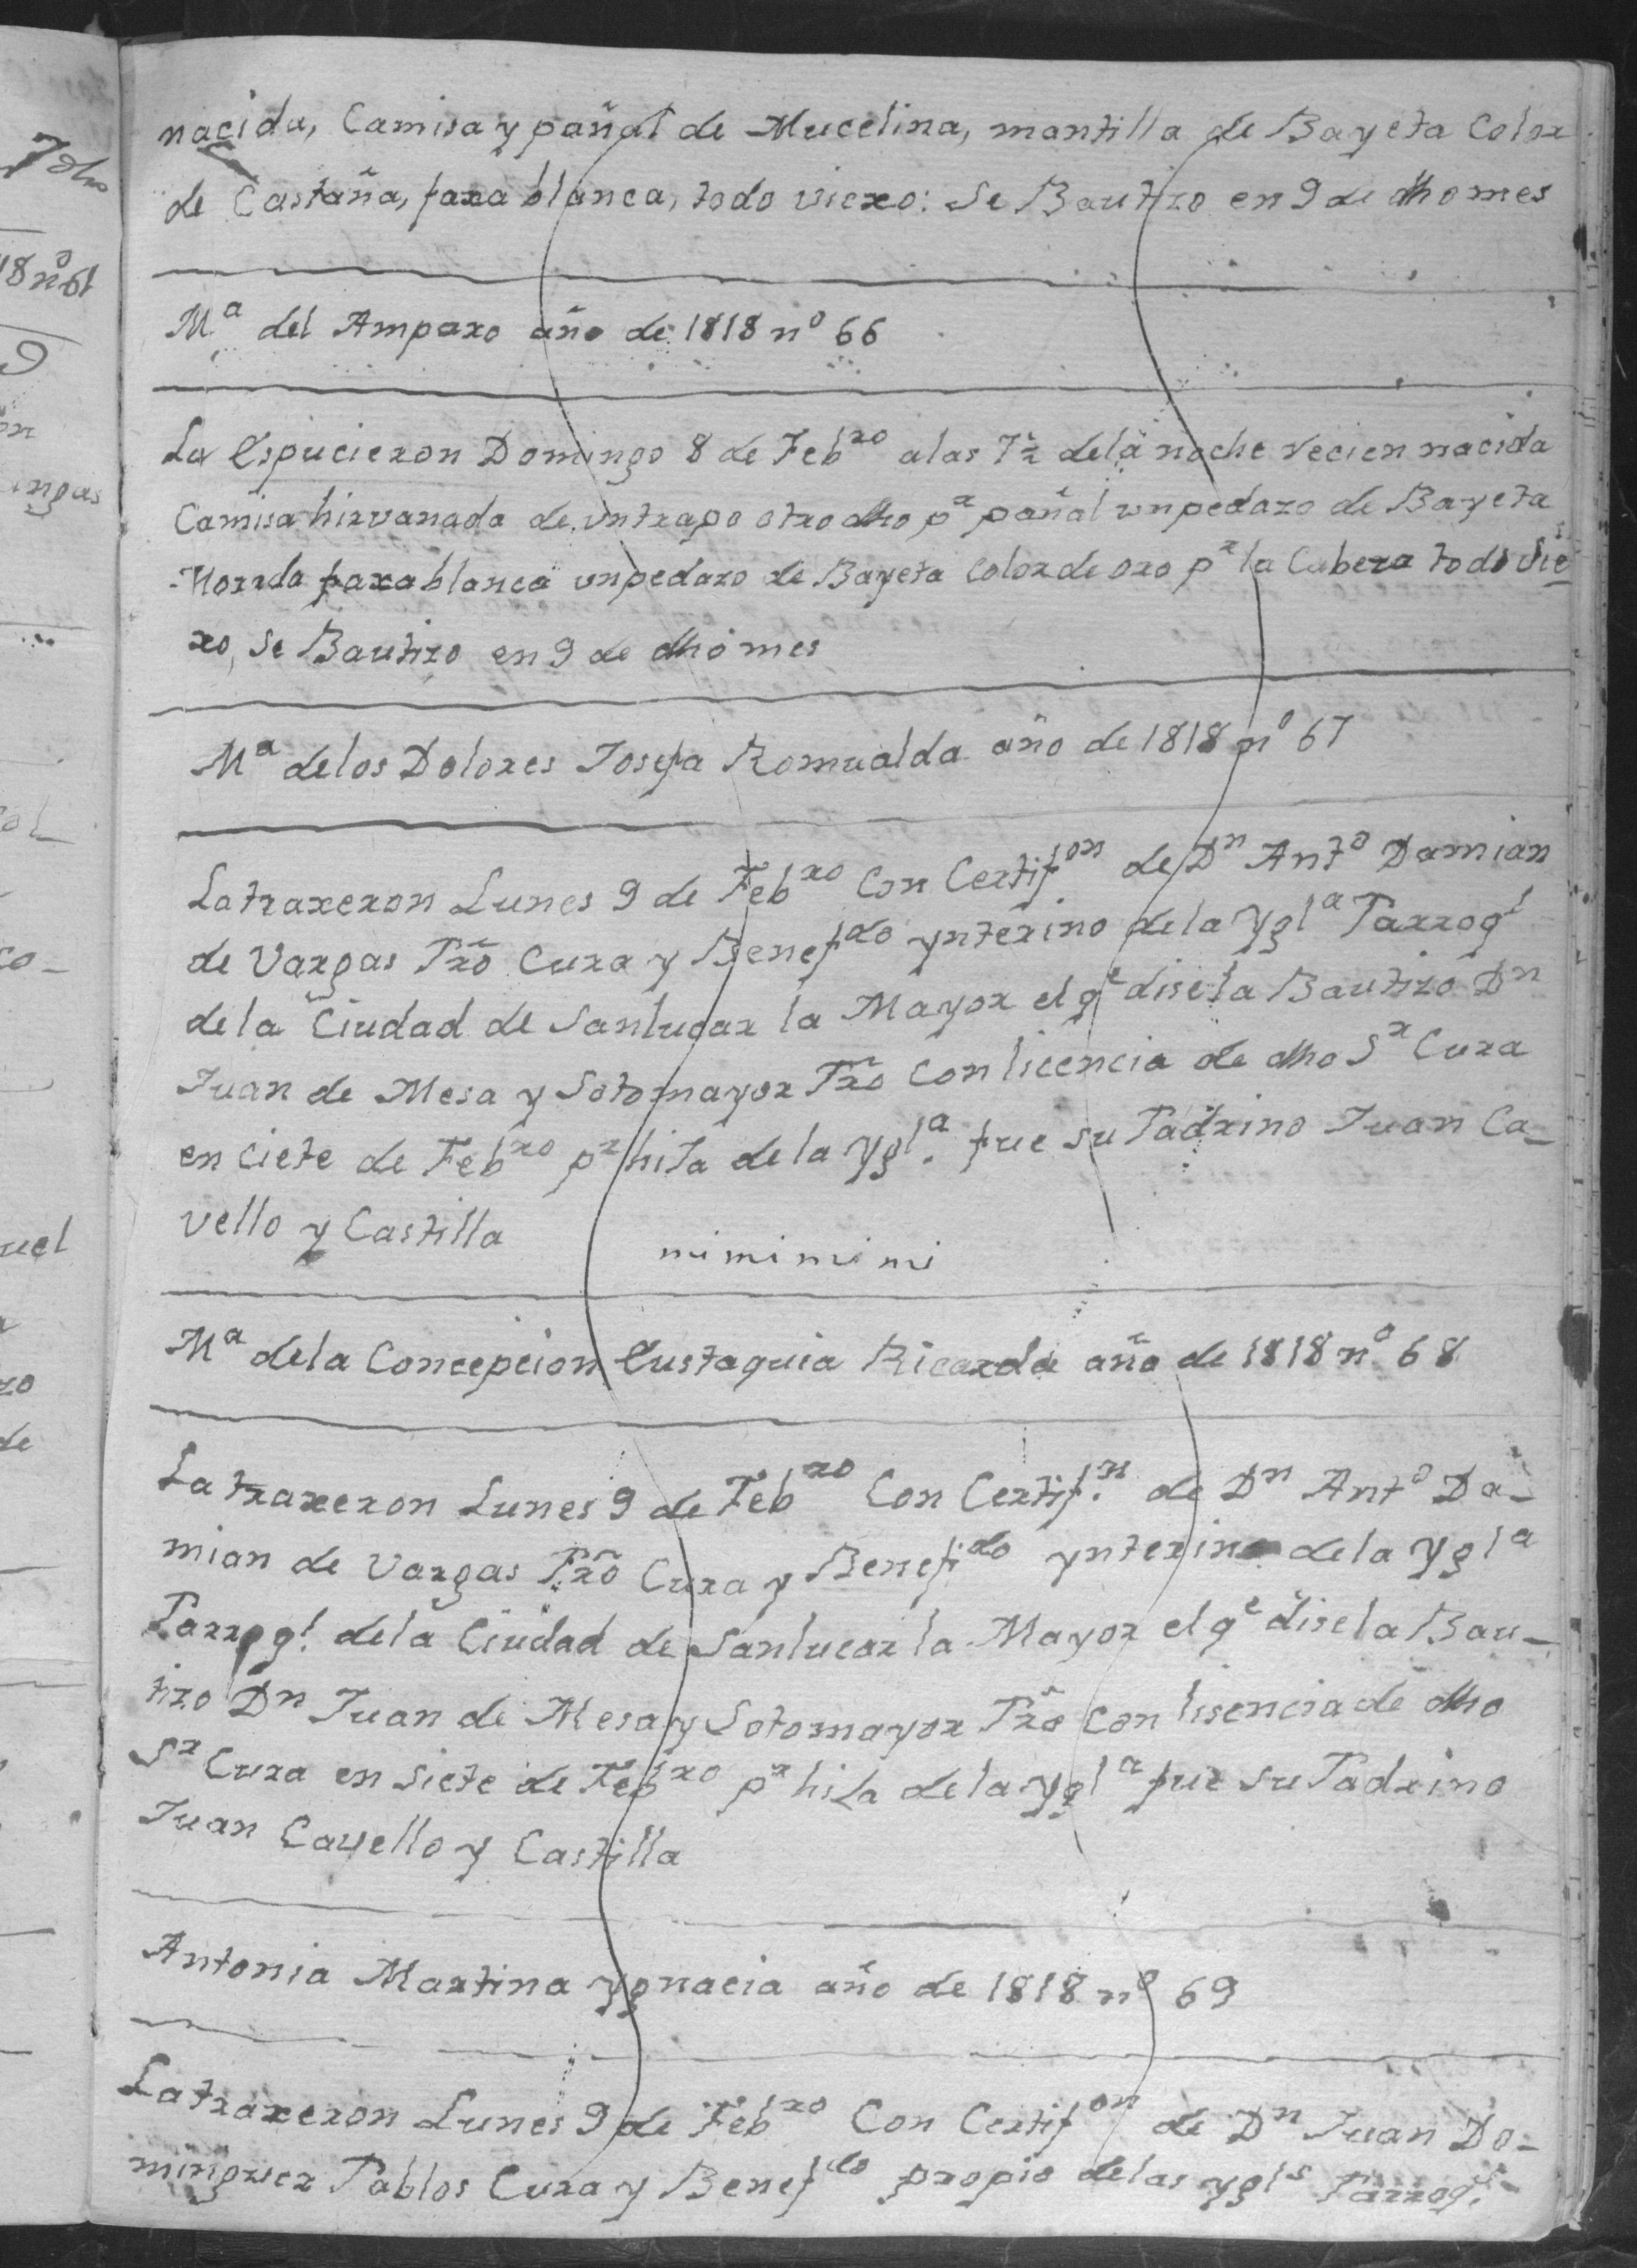 nacida, Camisa y pañal de Mucelina, mantilla de Bayeta Color
de Castaña, faxa blanca, todo viexo: Se Bautizo en 9 de dho mes
Mª del Amparo año de 1818 nº 66
La Espucieron Domingo 8 de Febro a las 7½ dela noche recien nacida
Camisa hirvanada de un trapo otro dho pª pañal un pedazo de Bayeta
Morada faxa blanca un pedazo de Bayeta Color de oro pª la Cabeza todo vie
xo, Se Bautizo en 9 de dho mes
Mª delos Dolores Josefa Romualda año de 1818 nº 67
La traxeron Lunes 9 de Febro Con Certifon de Dn Antº Damian
de Vargas Prõ Cura y Benefdo ynterino dela Yglª Parrogl
dela Ciudad de Sanlucar la Mayor el qe dise la Bautizo Dn
Juan de Mesa y Sotomayor Prõ Con licencia de dho Sr Cura
en ciete de Febro pr hiJa de la Yglª. fue su Padrino Juan Ca-
vello y Castilla mi mi mi mi
Mª dela Concepcion Eustaquia Ricarda año de 1818 nº 68
La traxeron Lunes 9 de Febro Con Certif.n de Dn Antº Da-
mian de Vargas Prõ Cura y Benefido ynterino dela Yglª
Parrogl. dela Ciudad de Sanlucar la Mayor el qe dise la Bau-
tizo Dn Juan de Mesa y Sotomayor Prõ Con lisencia de dho
Sr Cura en siete de Febro pr hiJa dela Yglª fue su Padrino
Juan Cavello y Castilla
Antonia Martina ygnacia año de 1818 nº 69
La traxeron Lunes 9 de Febro Con Certifon de Dn Juan Do-
minguez Pablos Cura y Benefdo propio delas ygls Parrog.s